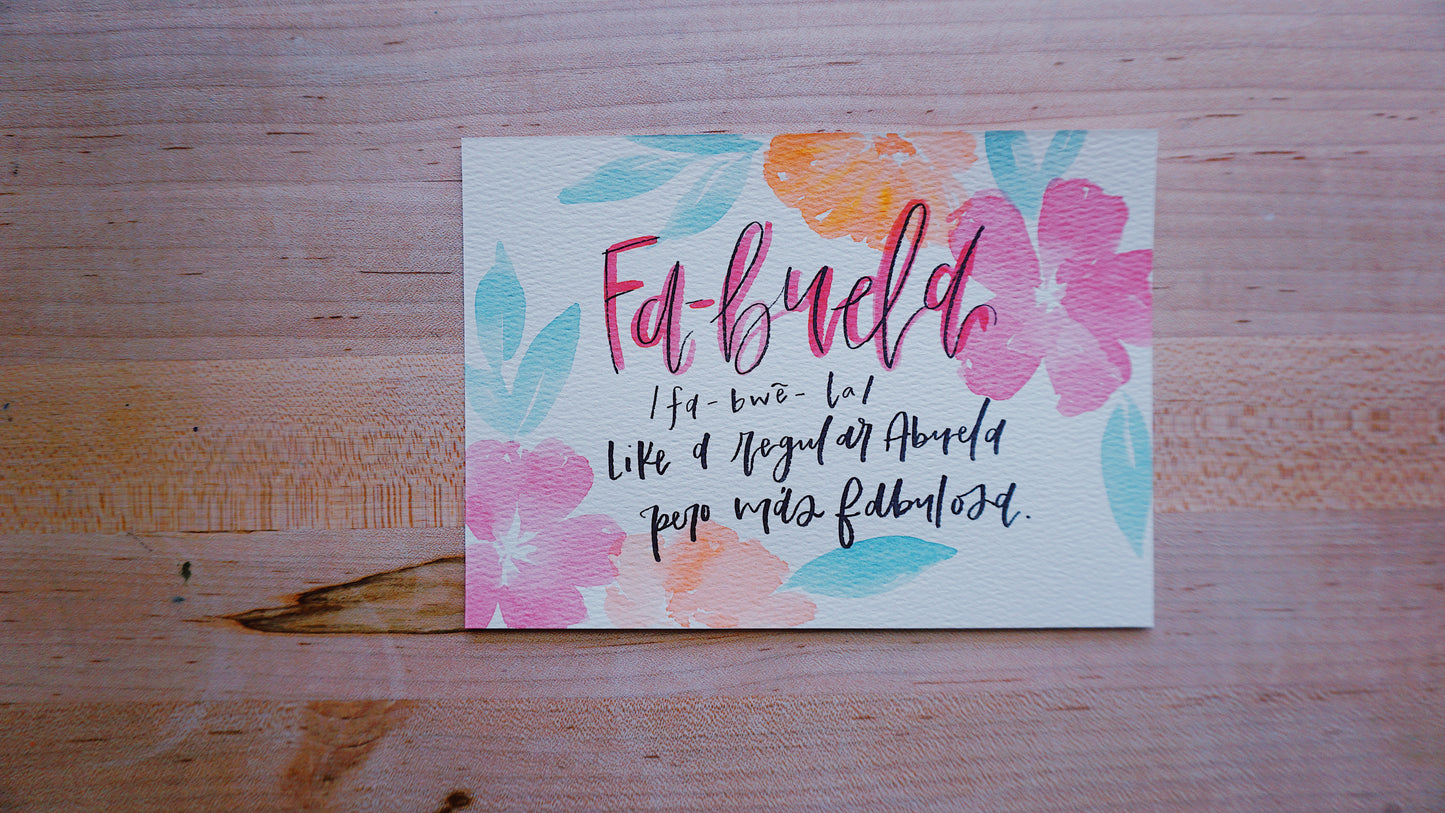 Fa-buela
/fa-bwē-la/
Like a regular Abuela
pero más fabulosa.